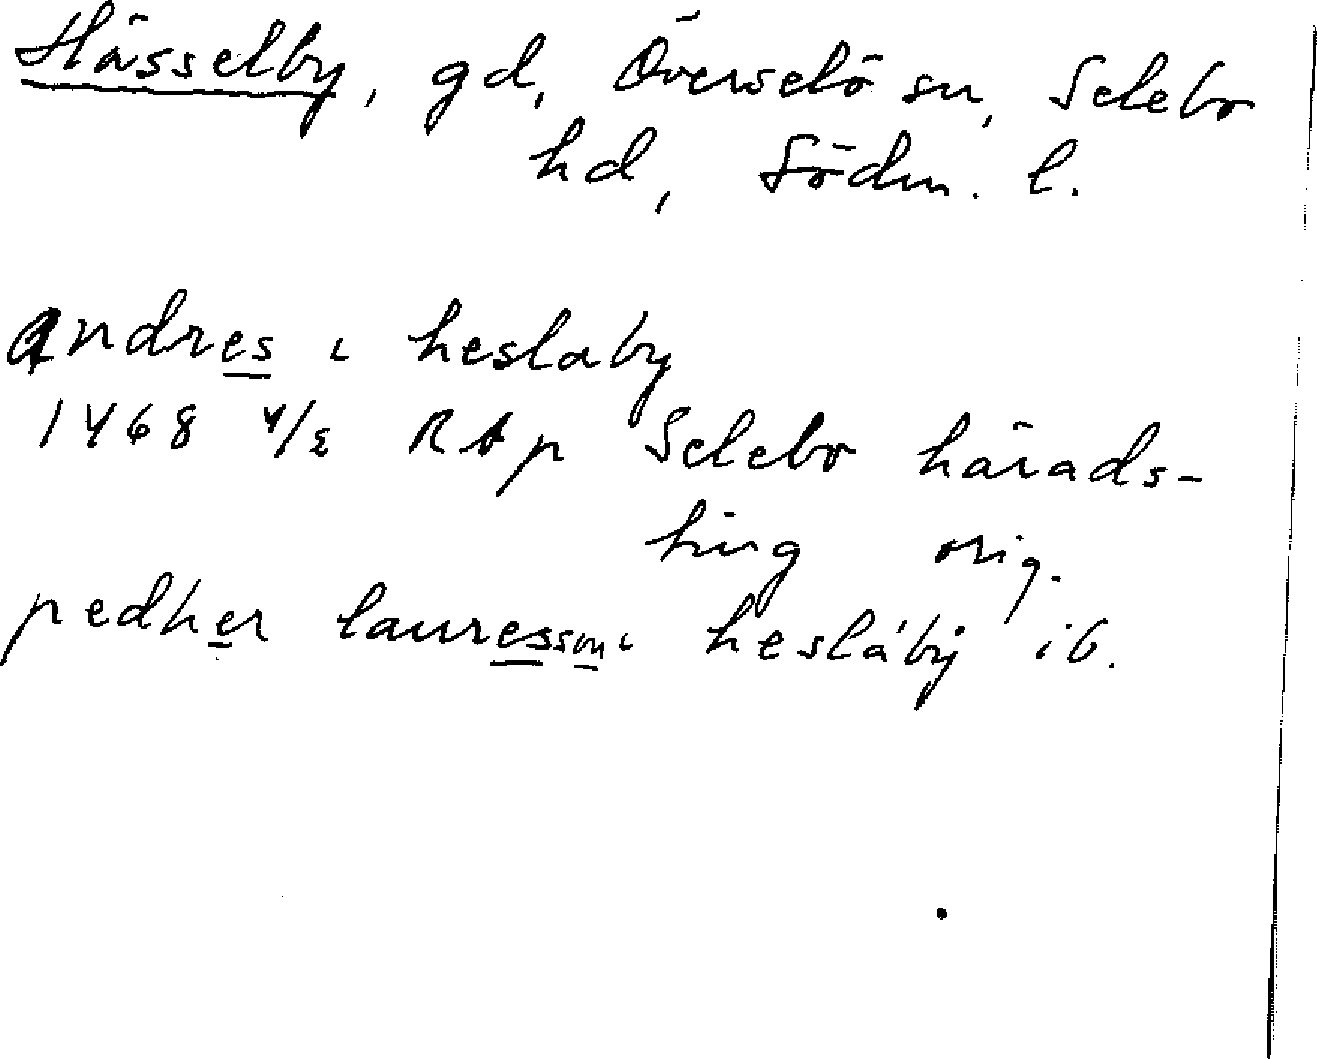 Hässelby, gd, Överselö sn, Selebo
hd, Södm. l.
andres i heslaby
1468 4/2 RAp Selebo härads-
ting orig.
pedher lauresson i heslábý ib.